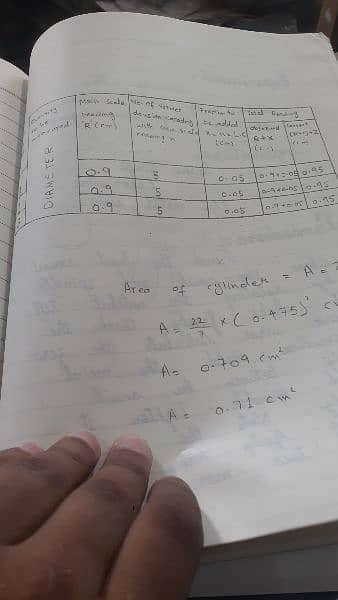 Quantity to be measured | Main scale reading 'R' (cm) | No. of Vernier division coinciding with main scale reading n | Fraction to be added x = n x LC (cm) | Total Reading
observed R+x (cm) | 
DIAMETER
0.9 | 5 | 0.05 | 0.9+0.05 | 0.95
0.9 | 5 | 0.05 | 0.9+0.05 | 0.95
0.9 | 5 | 0.05 | 0.9+0.05 | 0.95
Area of cylinder = A =
A = 22/7 x (0.475)²
A = 0.709 cm²
A = 0.71 cm²